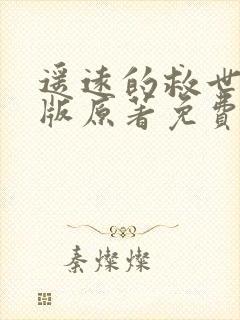 遥远的救世
版原著免費
秦燦燦